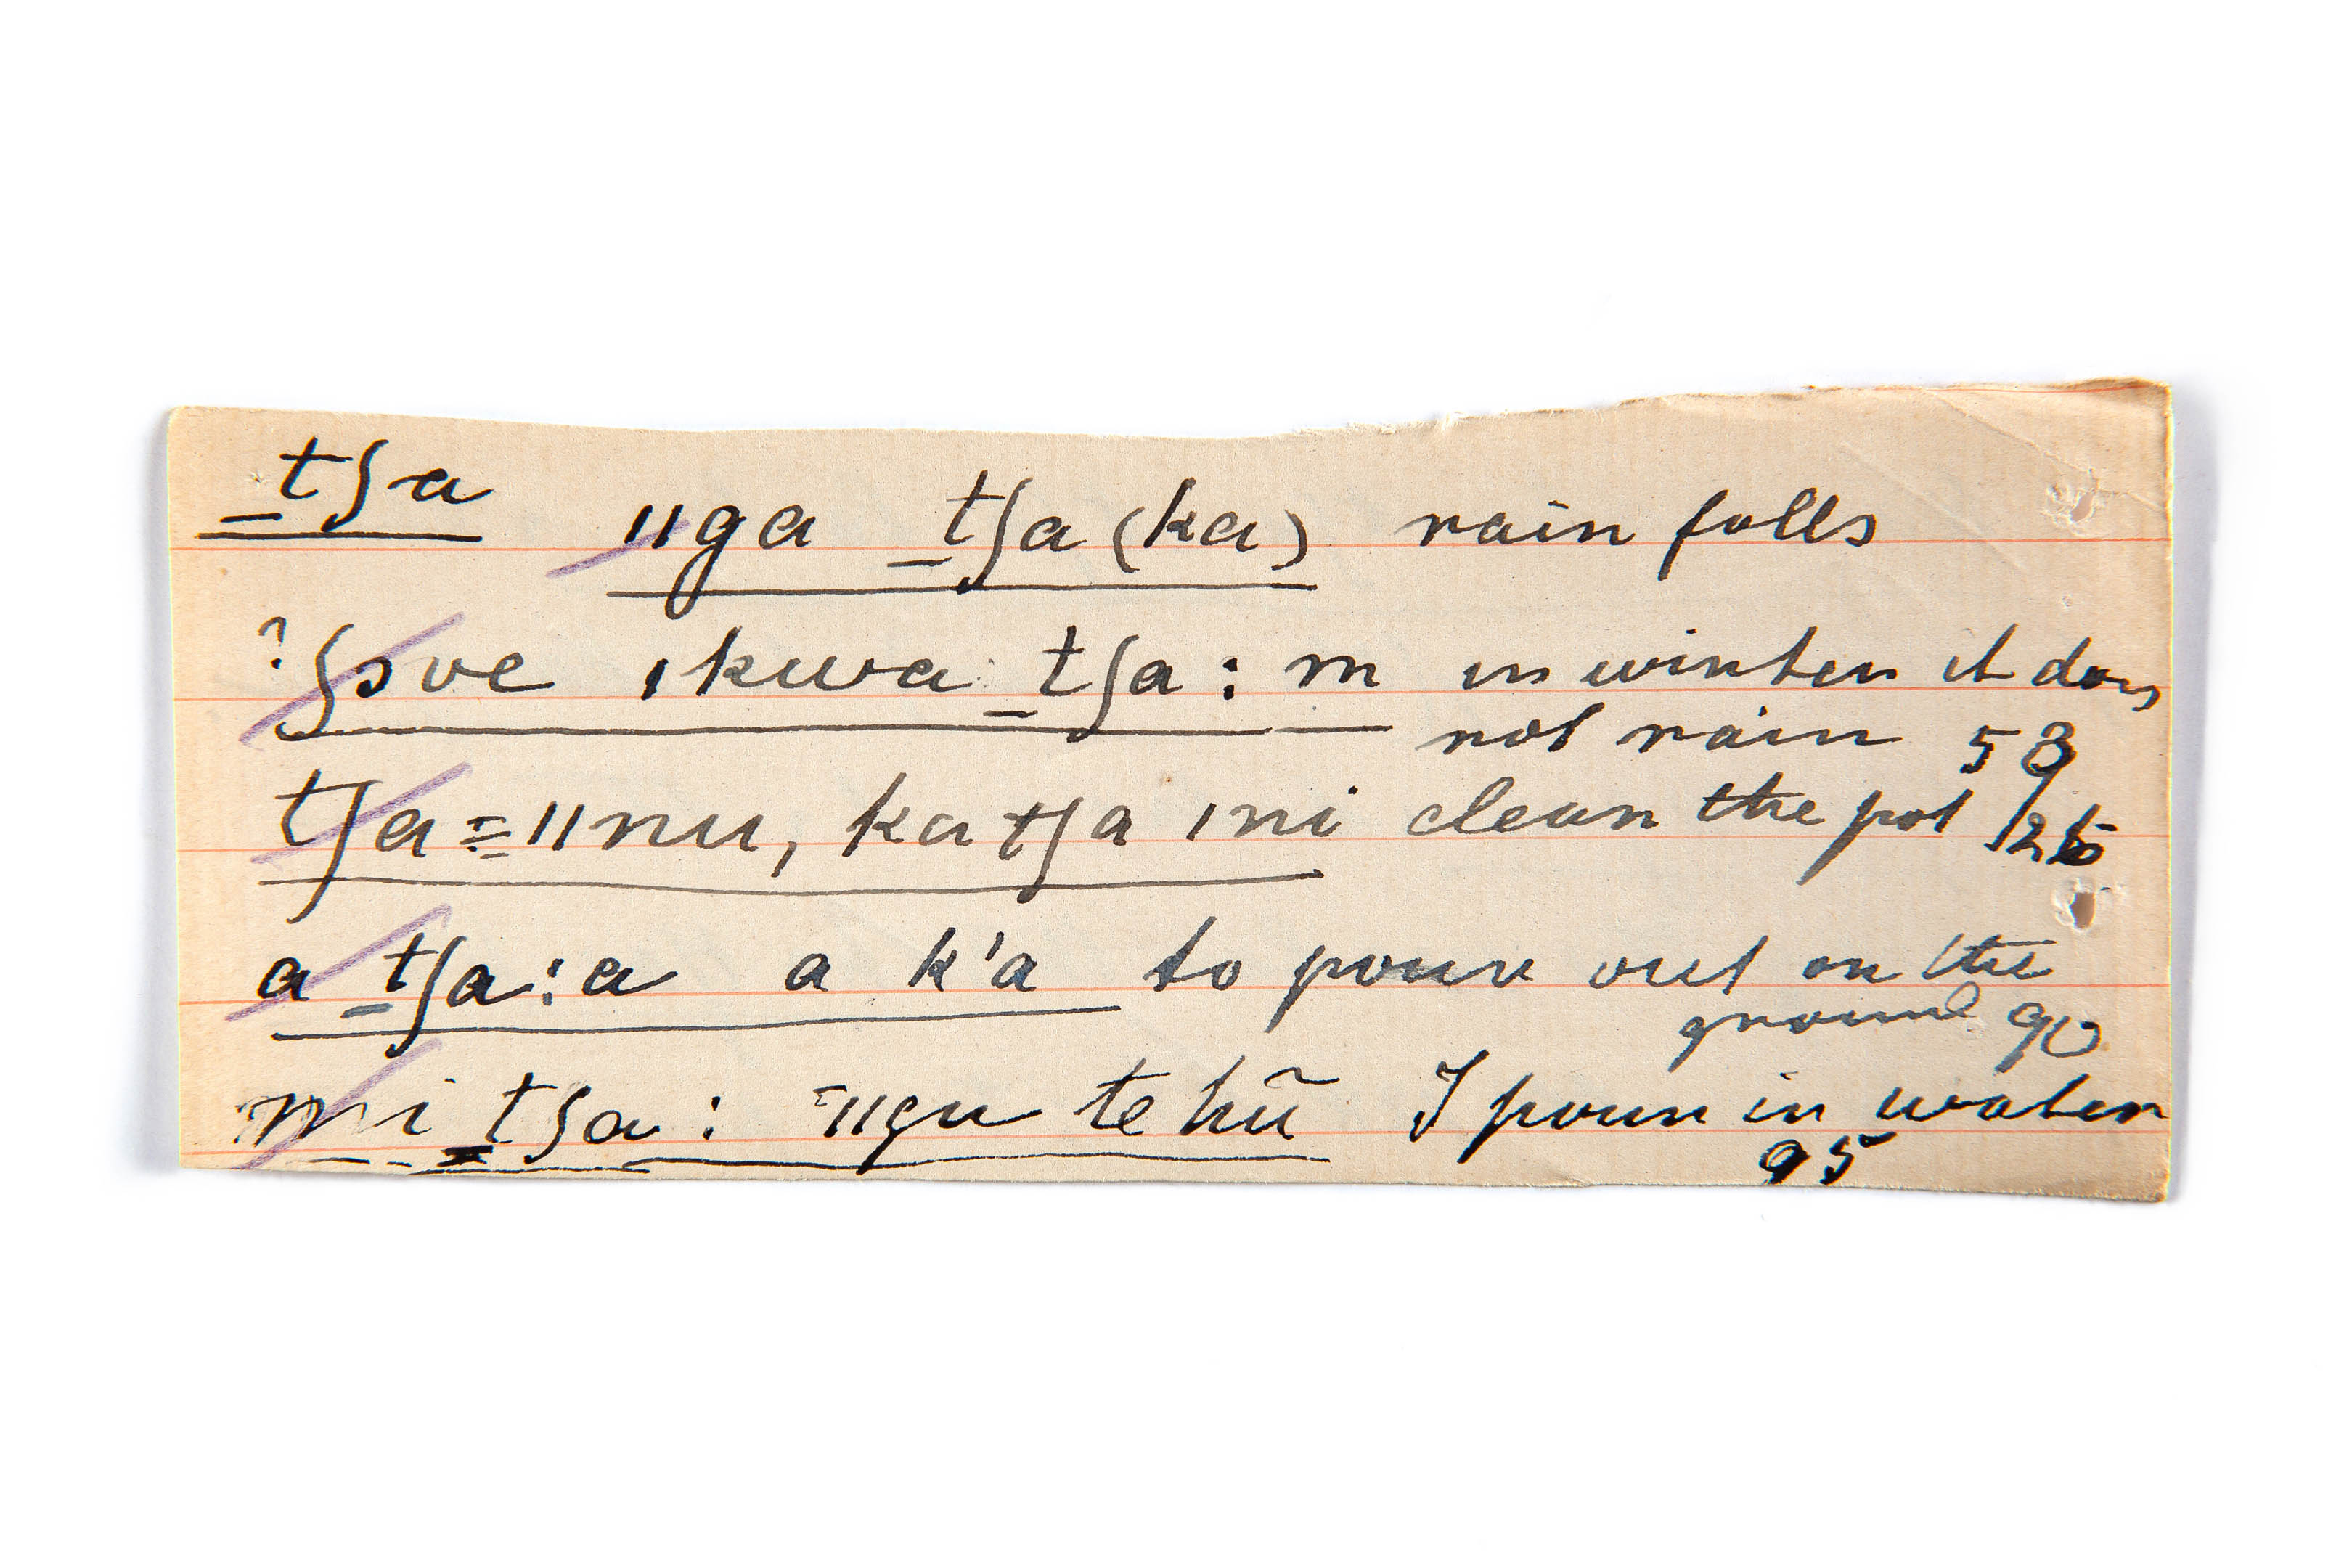 _tʃa
ǁga _tʃa (ka) rain falls
?ʃɔve ǀkwa _tʃa: m in winter it does
not rain 58
tʃa = ǁnu, ka tʃa ǀni clean the pot /26
a _tʃa:a a k'a to pour out on the
ground 90
mi _tʃa: ˉǁgu te hũ I pour in water
95